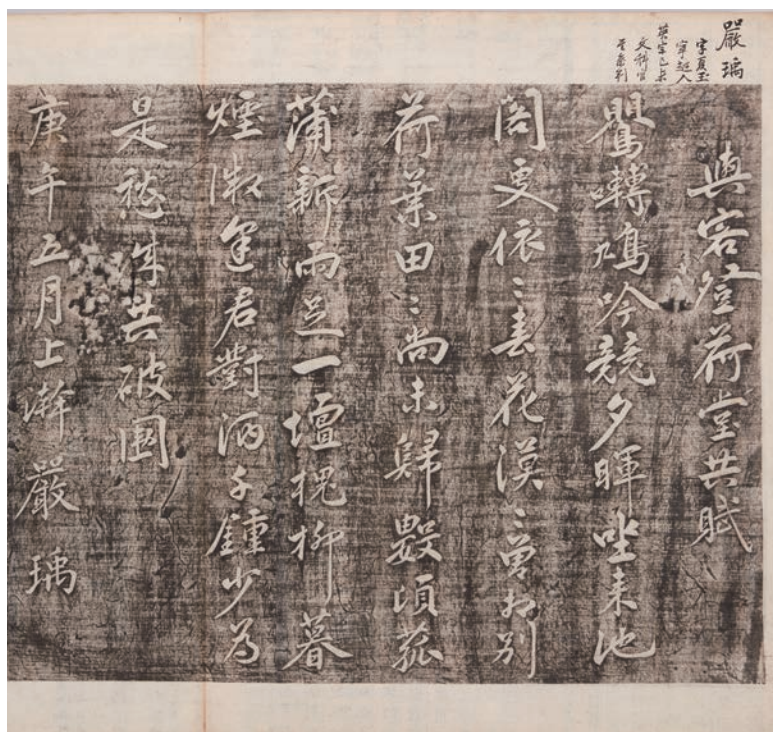 嚴瑀
字夏玉
寧越人
英宗己未
文科官
至參判
與客登荷堂共賦
鸎囀鳩吟競夕暉坐來池
閣更依〻春花漠〻曾相別
荷葉田〻尚未歸數頃菰
蒲新雨足一壇槐柳暮
煙微逢君對酒千鍾少爲
是愁城共破圍
庚午五月上澣嚴瑀